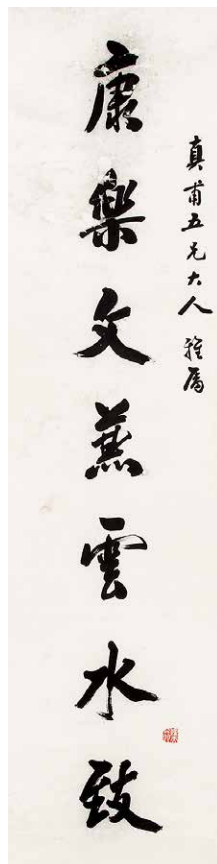 真甫五兄大人 雅属
康樂文兼雲水致